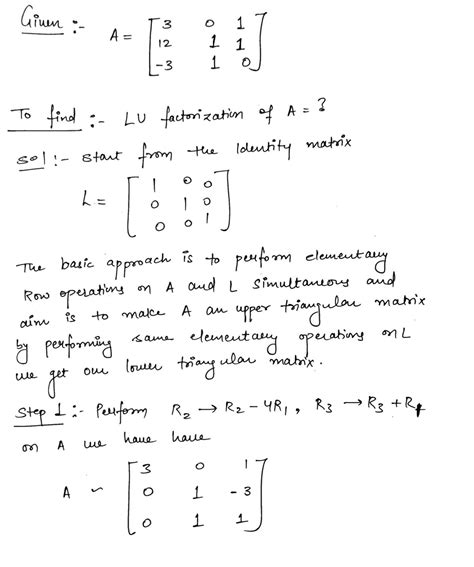 Given :-
A = [ 3 0 1
12 1 1
-3 1 0 ]
To find :- LU factorization of A = ?
Sol :- Start from the Identity matrix
L = [ 1 0 0
0 1 0
0 0 1 ]
The basic approach is to perform elementary
Row operations on A and L Simultaneous and
aim is to make A an upper triangular matrix
by performing same elementary operations on L
we get our lower triangular matrix.
Step 1 :- Perform R2 → R2 - 4R1, R3 → R3 + R1
on A we have have
A ~ [ 3 0 1
0 1 -3
0 1 1 ]